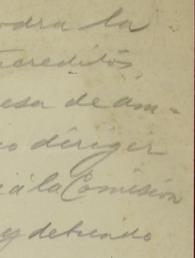 odra la
acreditos
esa de am-
io dirigir
i á la Comisión
y debiendo